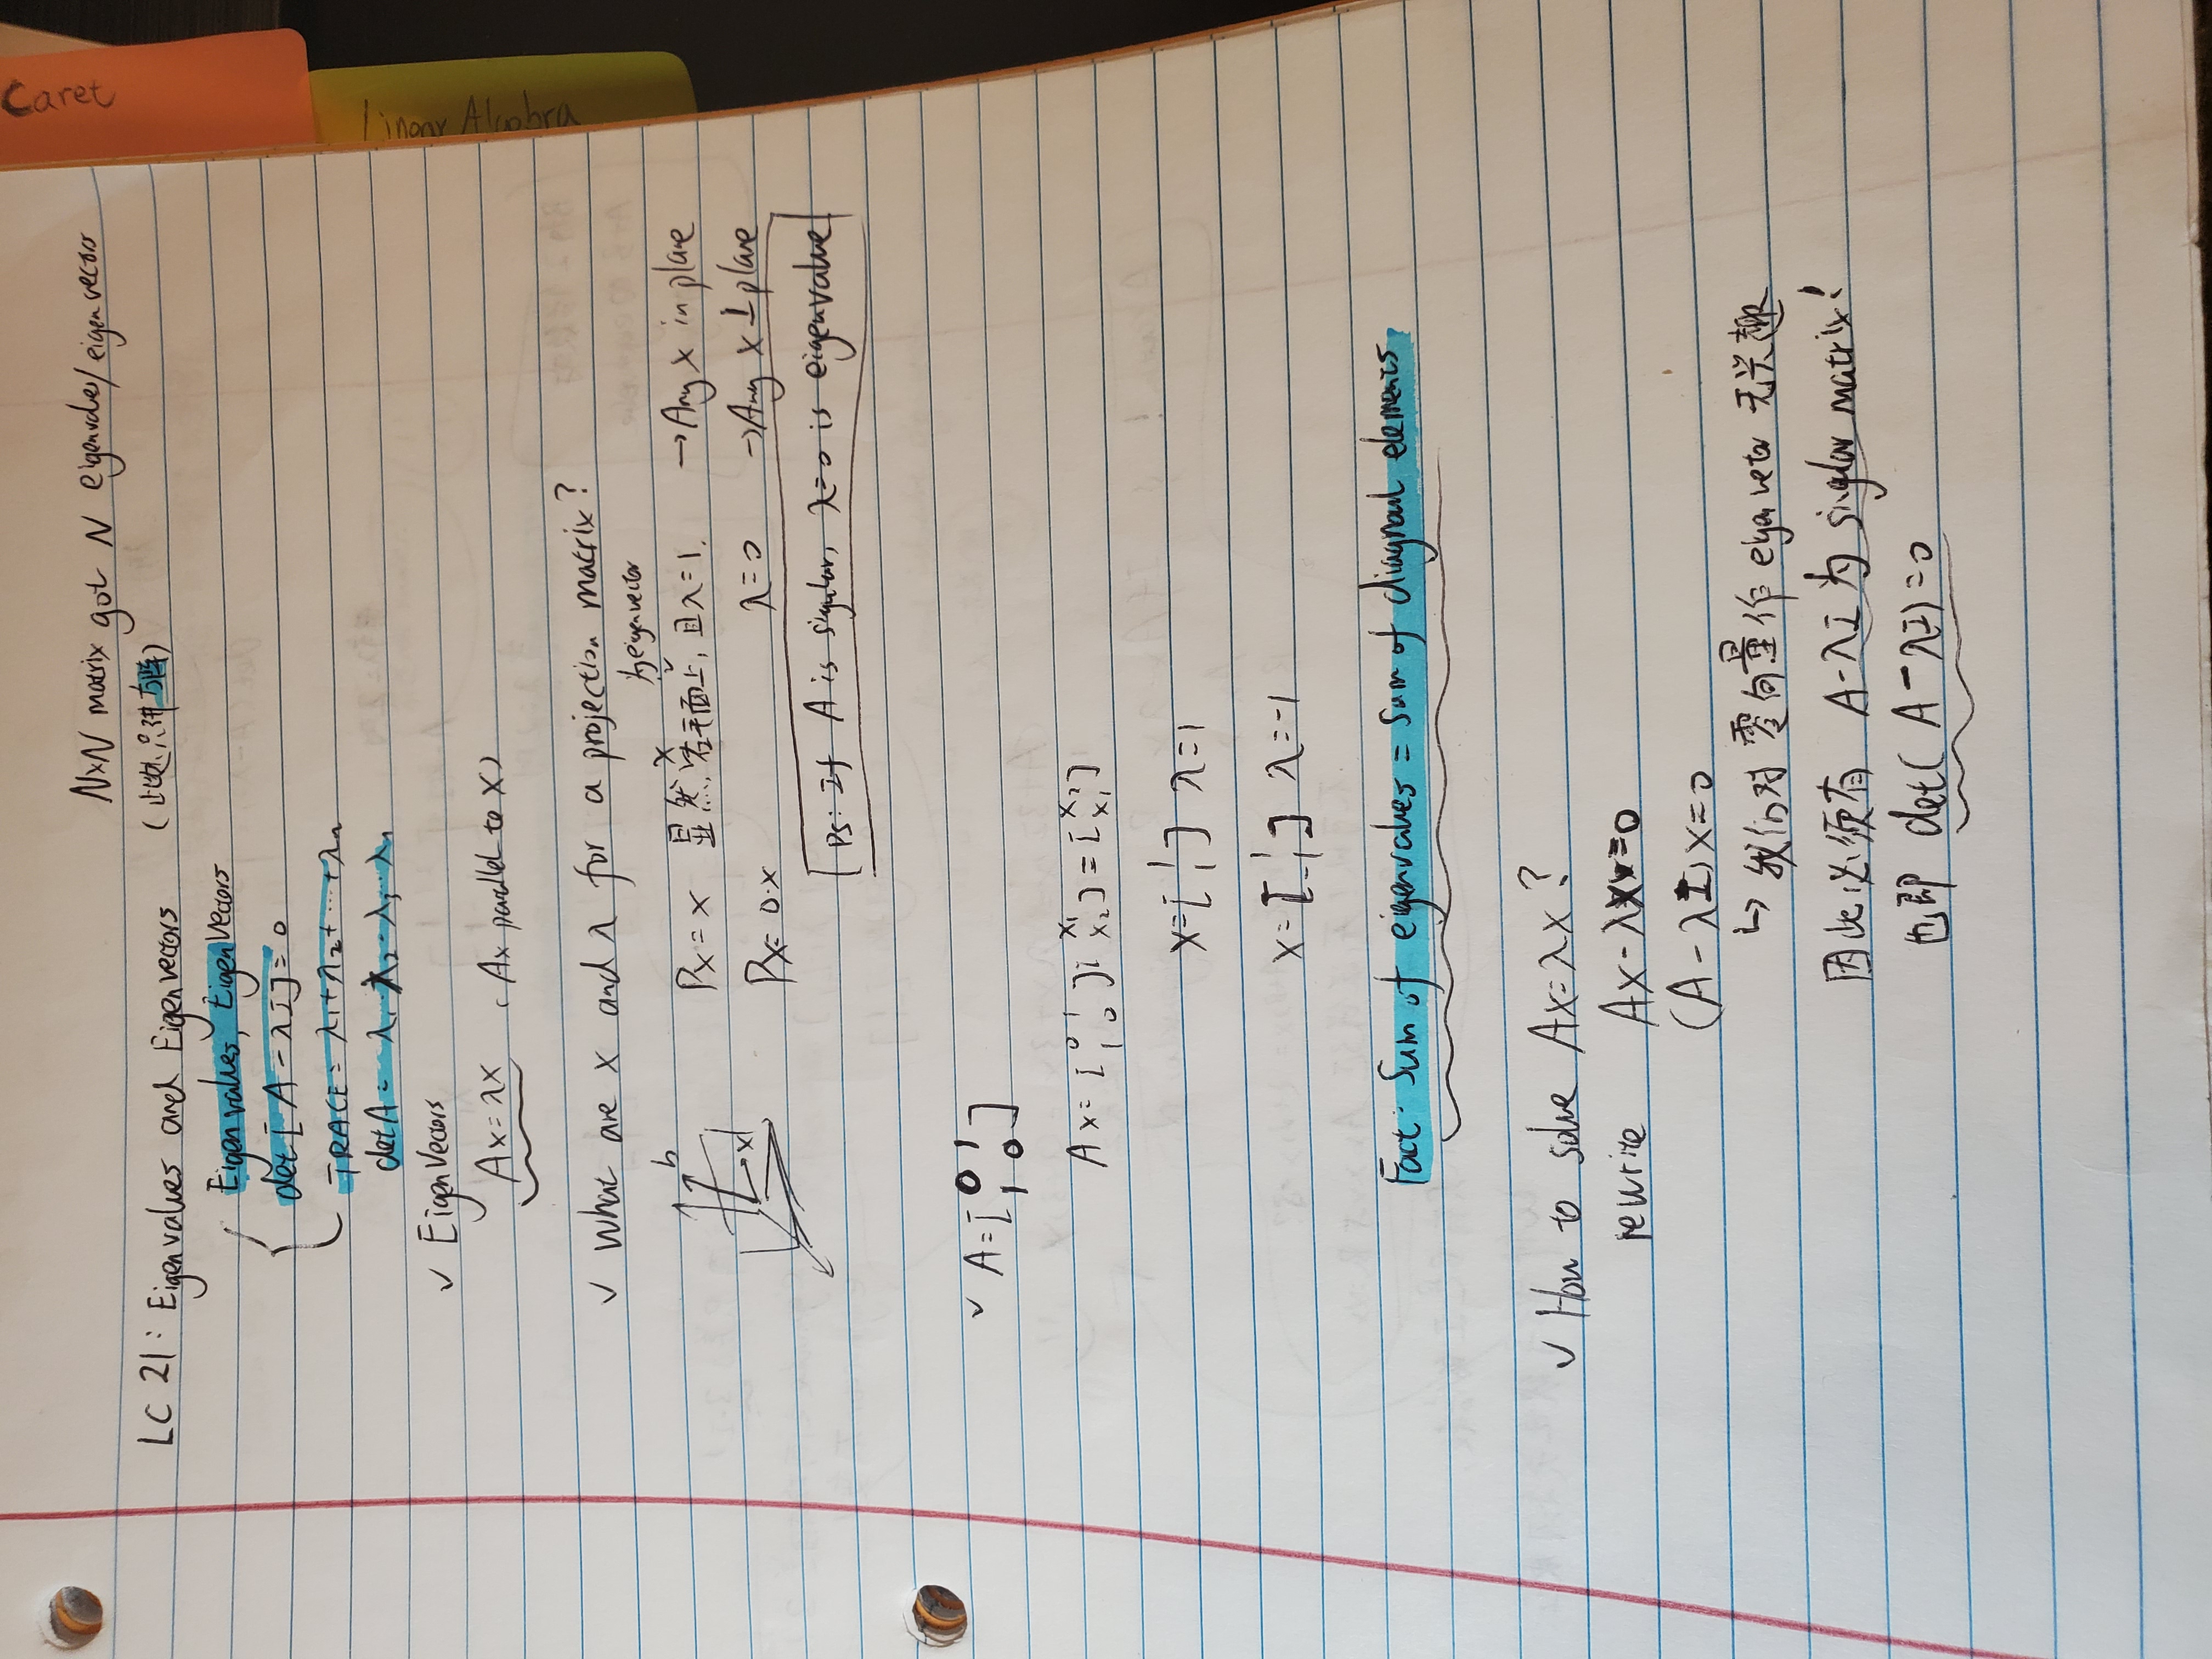 Caret
Linear Algebra
N×N matrix got N eigenvalues/eigenvectors
LC 21: Eigenvalues and Eigenvectors (此处只讲方阵)
Eigenvalues, EigenVectors
det[A-λI]=0
TRACE=λ₁+λ₂+···+λₙ
detA=λ₁·λ₂·λ₃···λₙ
✓ EigenVectors
Ax=λx (Ax parallel to x)
✓ What are x and λ for a projection matrix?
b
x
为eigenvector
Px=x 显然,x若平面上,且λ=1. →Any x in plane
Px=0·x λ=0 →Any x⊥plane
Ps: If A is sigular, λ=0 is eigenvalue
✓ A=[0 1
1 0]
Ax=[0 1 1 0][x₁ x₂]=[x₂ x₁]
x=[1 1] λ=1
x=[1 -1] λ=-1
Fact: Sum of eigenvalues = Sum of diagnoal elements
✓ How to solve Ax=λx?
rewrite Ax-λx=0
(A-λI)x=0
↳ 我们对零向量作eigenvetor无兴趣
因此必须有 A-λI为singlar matrix!
也即 det(A-λI)=0